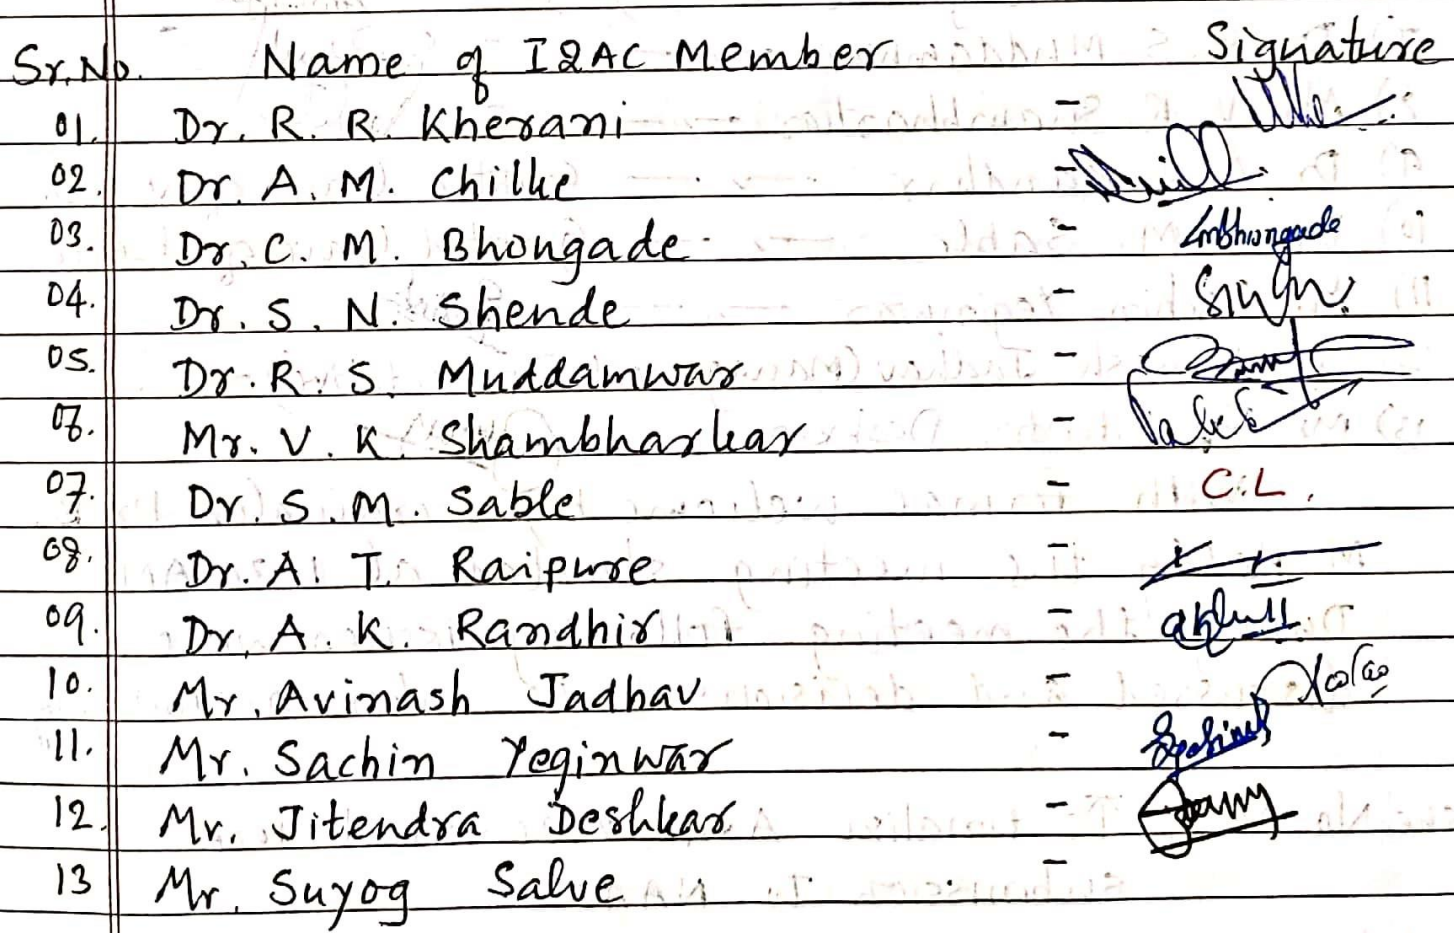 Sr.No. Name of IQAC Member Signature
01. Dr. R. R. Kherani -
02. Dr. A. M. Chilke -
03. Dr. C. M. Bhongade - CMBhongade
04. Dr. S. N. Shende -
05. Dr. R. S. Muddamwar -
06. Mr. V. K. Shambharkar -
07. Dr. S. M. Sable - C.L.
08. Dr. A. T. Raipure -
09. Dr. A. K. Randhir -
10. Mr. Avinash Jadhav -
11. Mr. Sachin Yeginwar -
12. Mr. Jitendra Deshkar -
13 Mr. Suyog Salve -